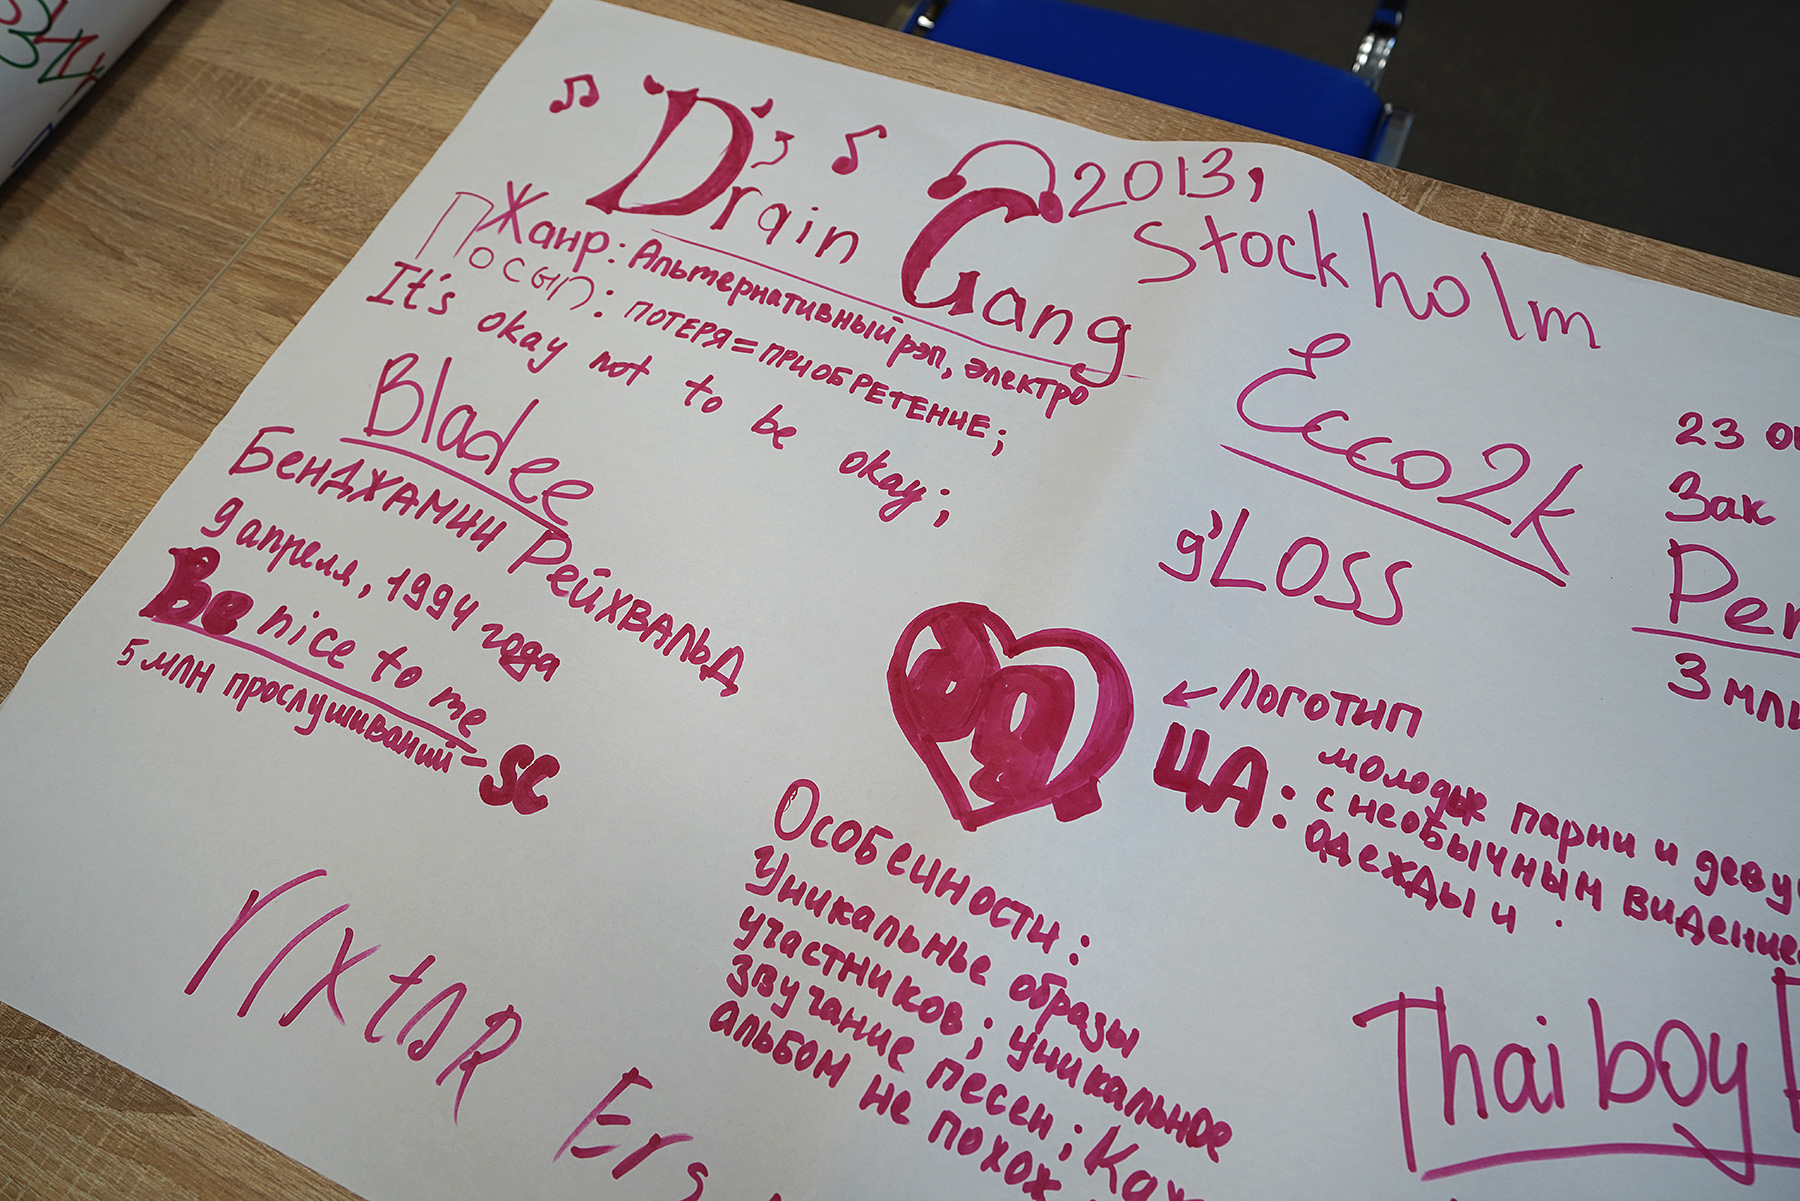 Drain Gang
2013,
Stockholm
Жанр: Альтернативный рэп, электро
Посыл: потеря = приобретение;
It's okay not to be okay;
Bladee
Бенджамин Рейхвальд
9 апреля, 1994 года
Be nice to me
5 млн прослушиваний - SC
Ecco2k
g'LOSS
23
Зак
Per
3 мл
Логотип
ЦА: молодые парни и деву
с необычным видение
одежды и
Особенности:
Уникальные образы
участников; уникальное
звучание песен; Каж
альбом не похож
Thaiboy